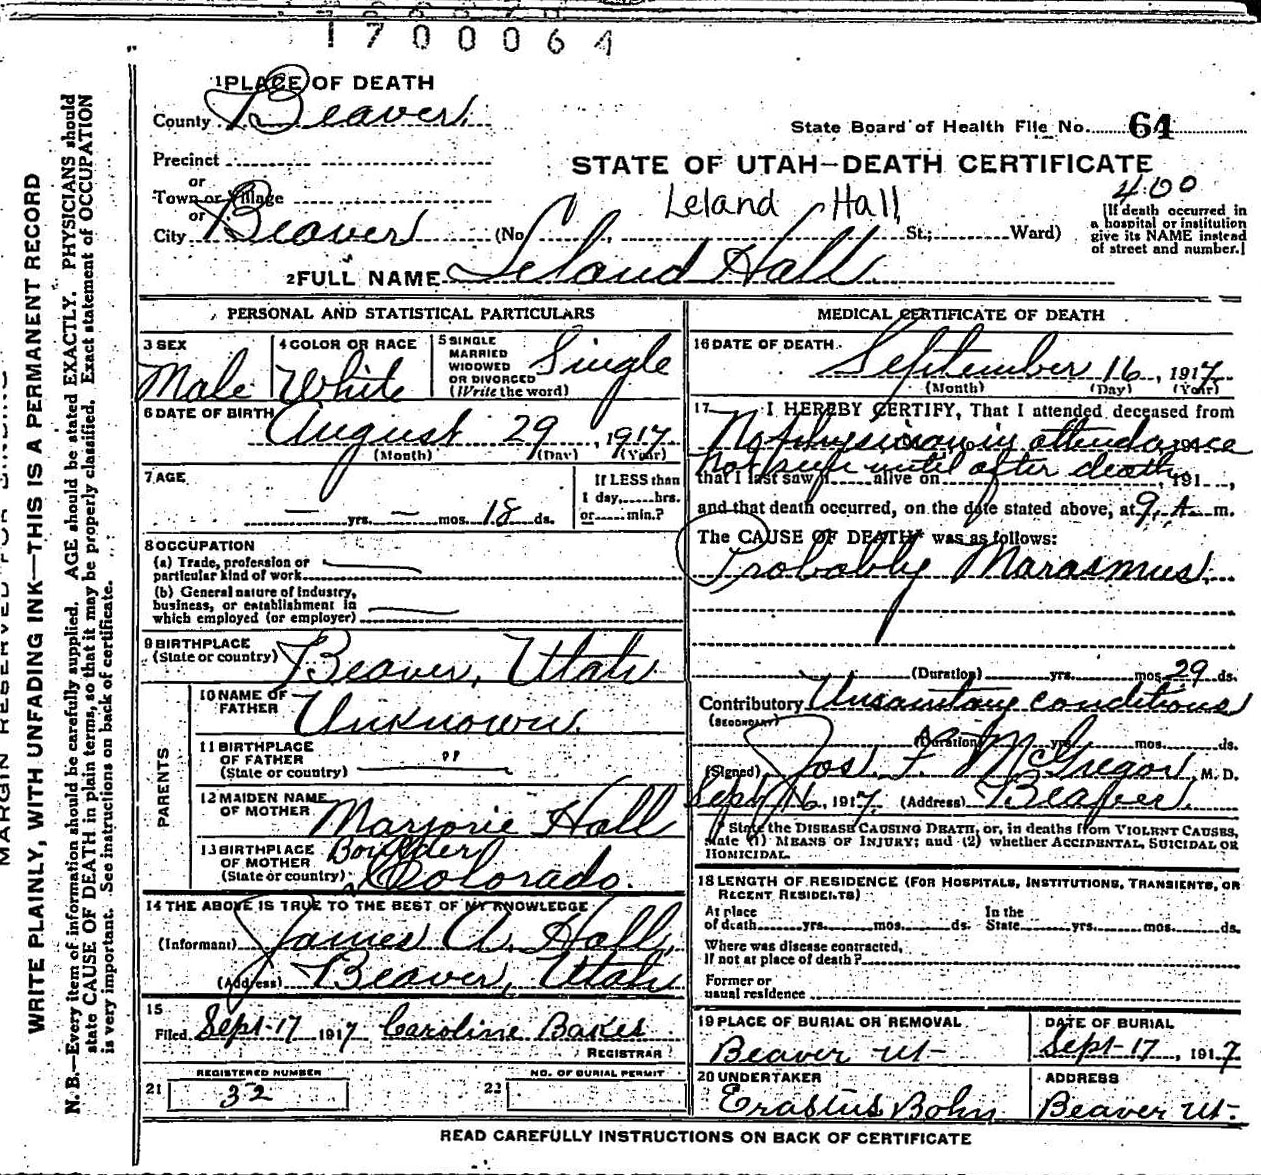 1700064
1 PLACE OF DEATH
County Beaver
State Board of Health File No. 64
Precinct
STATE OF UTAH—DEATH CERTIFICATE
or
Town or Village
Leland Hall
400
or
City Beaver (No. St.; Ward)
[If death occurred in
a hospital or institution
give its NAME instead
of street and number.]
2 FULL NAME Leland Hall
PERSONAL AND STATISTICAL PARTICULARS
3 SEX
Male
4 COLOR OR RACE
White
5 SINGLE
MARRIED
WIDOWED
OR DIVORCED
(Write the word)
Single
6 DATE OF BIRTH
August 29, 1917
(Month) (Day) (Year)
7 AGE
— yrs. — mos. 18 ds.
If LESS than
1 day, hrs.
or min.?
8 OCCUPATION
(a) Trade, profession or
particular kind of work
(b) General nature of industry,
business, or establishment in
which employed (or employer)
9 BIRTHPLACE
(State or country) Beaver, Utah
PARENTS
10 NAME OF
FATHER Unknown
11 BIRTHPLACE
OF FATHER
(State or country) "
12 MAIDEN NAME
OF MOTHER Marjorie Hall
13 BIRTHPLACE
OF MOTHER
(State or country) Boulder, Colorado.
14 THE ABOVE IS TRUE TO THE BEST OF MY KNOWLEDGE
(Informant) James A. Hall,
(Address) Beaver, Utah
15
Filed Sept-17 1917 Caroline Bakes
REGISTRAR
REGISTERED NUMBER
21 32
NO. OF BURIAL PERMIT
22
MEDICAL CERTIFICATE OF DEATH
16 DATE OF DEATH
September 16, 1917
(Month) (Day) (Year)
17 I HEREBY CERTIFY, That I attended deceased from
No physician in attendance
not seen until after death
that I last saw alive on , 191 ,
and that death occurred, on the date stated above, at 9 A m.
The CAUSE OF DEATH* was as follows:
Probably Marasmus.
(Duration) yrs. mos. 29 ds.
Contributory Unsanitary conditions
(SECONDARY)
(Duration) yrs. mos. ds.
(Signed) Jos. F. McGregor, M. D.
Sept 16, 1917. (Address) Beaver.
* State the DISEASE CAUSING DEATH, or, in deaths from VIOLENT CAUSES,
state (1) MEANS OF INJURY; and (2) whether ACCIDENTAL, SUICIDAL OR
HOMICIDAL.
18 LENGTH OF RESIDENCE (FOR HOSPITALS, INSTITUTIONS, TRANSIENTS, OR
RECENT RESIDENTS)
At place
of death yrs. mos. ds.
In the
State yrs. mos. ds.
Where was disease contracted,
If not at place of death?
Former or
usual residence
19 PLACE OF BURIAL OR REMOVAL
Beaver Ut-
DATE OF BURIAL
Sept-17, 1917
20 UNDERTAKER
Erastus Bohn
ADDRESS
Beaver Ut-
READ CAREFULLY INSTRUCTIONS ON BACK OF CERTIFICATE
WRITE PLAINLY, WITH UNFADING INK—THIS IS A PERMANENT RECORD
N. B.—Every item of information should be carefully supplied. AGE should be stated EXACTLY. PHYSICIANS should
state CAUSE OF DEATH in plain terms, so that it may be properly classified. Exact statement of OCCUPATION
is very important. See instructions on back of certificate.